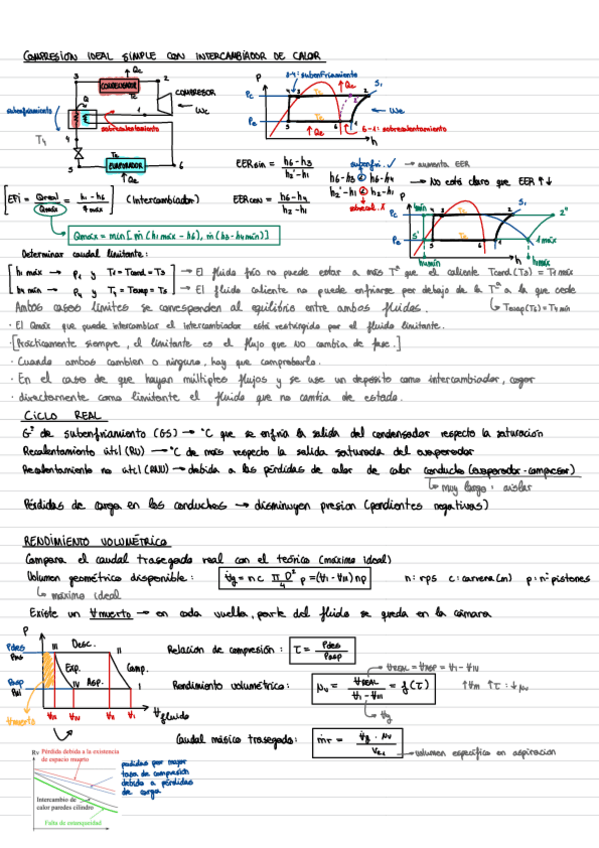 COMPRESION IDEAL SIMPLE CON INTERCAMBIADOR DE CALOR
3
Qc
2
CONDENSADOR
COMPRESOR
Wc
Q
1
subenfriamiento
sobrecalentamiento
T4
4
EVAPORADOR
5
6
Qe
P
3-4: subenfriamiento
Qc
S1
Pc
Pe
Wc
Qe
6-1: sobrecalentamiento
h
EERsin = h6-h3 / h2'-h1
subenfri. ✓ → aumenta EER
h6-h3 < h6-h4
h2'-h1 < h2-h1
sobrecal. X
→ No está claro que EER ↑↓
EERcon = h6-h4 / h2-h1
[EFi = Qreal / Qmáx = h1-h6 / qmáx] (Intercambiador)
Qmáx = min[ṁ(h1máx - h6), ṁ(h3-h4mín)]
P
Pc
Pe
4mín
S1
2"
5'
1máx
h4mín
h1máx
h
Determinar caudal limitante:
h1 máx → P1 y T1 = Tcond = T3 → El fluido frío no puede estar a más Tª que el caliente Tcond(T3) = T1máx
h4 mín → P4 y T4 = Tevap = T6 → El fluido caliente no puede enfriarse por debajo de la Tª a la que cede
Tevap(T6) = T4mín
Ambos casos límites se corresponden al equilibrio entre ambos fluidos.
· El Qmáx que puede intercambiar el intercambiador está restringido por el fluido limitante.
· [Prácticamente siempre, el limitante es el flujo que NO cambia de fase.]
· Cuando ambos cambien o ninguno, hay que comprobarlo.
· En el caso de que hayan múltiples flujos y se use un deposito como intercambiador, coger
· directamente como limitante el fluido que no cambia de estado.
CICLO REAL
Gº de subenfriamiento (GS) → °C que se enfría la salida del condensador respecto la saturación
Recalentamiento útil (RU) → °C de más respecto la salida saturada del evaporador
Recalentamiento no útil (RNU) → debida a las pérdidas de calor de calor conducto (evaporador-compresor)
↳ muy largo: aislar
Pérdidas de carga en los conductos → disminuyen presion (pendientes negativas)
RENDIMIENTO VOLUMÉTRICO
Compara el caudal trasegado real con el teórico (máximo ideal)
Volumen geométrico disponible: V̇g = n c π D² / 4 p = (V1 - VIII) n p n: rps c: carrera (m) p: nº pistones
↳ máximo ideal
Existe un Vmuerto → en cada vuelta, parte del fluido se queda en la cámara
P
Pdes
Pasp
III
Desc.
II
Exp.
Comp.
IV
Asp.
I
Vmuerto
VIII
VIV
VII
VI
V fluido
Relacion de compresión: τ = Pdes / Pasp
VREAL = VASP = V1 - VIV
Rendimiento volumétrico: ηv = VREAL / V1 - VIII = f(τ)
↑Vm ↑τ : ↓ηv
↳ Vg
Caudal másico trasegado: ṁr = V̇g · ηv / Vs1
→ volumen específico en aspiracion
Rv
Pérdida debida a la existencia
de espacio muerto
Intercambio de
calor paredes cilindro
Falta de estanqueidad
perdidas por mayor
tapa de compresión
debida a pérdidas
de carga